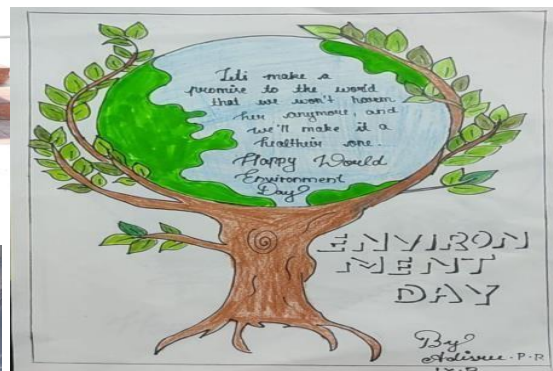 Let's make a
promise to the world
that we won't harem
her anymore, and
we'll make it a
healtheir one.
Happy World
Environment
Day
ENVIRON
MENT
DAY
By
P.R